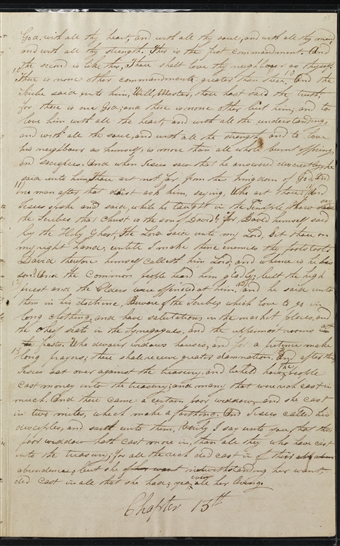 God, with all thy heart, and with all thy soul, and with all thy mind
and with all thy strength. This is the first commandment. And
the second is like this, Thou shalt love thy neighbour as thyself
There is none other commandment greater than these. And the
Scribe said unto him, Well, Master, thou hast said the truth,
for there is one God, and there is none other but him, and to
love him with all the heart, and with all the understanding,
and with all the soul, and with all the strength, and to love
his neighbour as himself, is more than all whole burnt offerings
and sacrifices. And when Jesus saw that he answered discreetly he
said unto him Thou art not far from the kingdom of God. And
no man after that durst ask him, saying, Who art thou. And
Jesus spoke and said, while he taught in the Temple, How say
the Scribes that Christ is the son of David? For David himself said
by the Holy Ghost, The Lord said unto my Lord, Sit thou on
my right hand, until I make thine enemies thy footstool.
David therefore himself calleth him Lord, and whence is he his
son? And the common people heard him gladly; but the high
priest and the Elders were offended at him. And he said unto
them in his doctrine, Beware of the Scribes which love to go in
long clothing, and have salutations in the market places, and
the chief seats in the Synagogues, and the uppermost rooms
at feasts. Who devours widows houses, and for a pretense make
long prayers; these shall receive greater damnation. And after this
Jesus sat over against the treasury, and beheld how the people
cast money into the treasury; and many that were rich cast in
much. And there came a certain poor widow, and she cast
in two mites, which make a farthing. And Jesus called his
disciples, and saith unto them, Verily I say unto you, that this
poor widow hath cast more in, than all they who have cast
into the treasury; for all the rich did cast in of their
abundance; but she notwithstanding her want
did cast in all that she had; yea, even all her living.
Chapter 15th